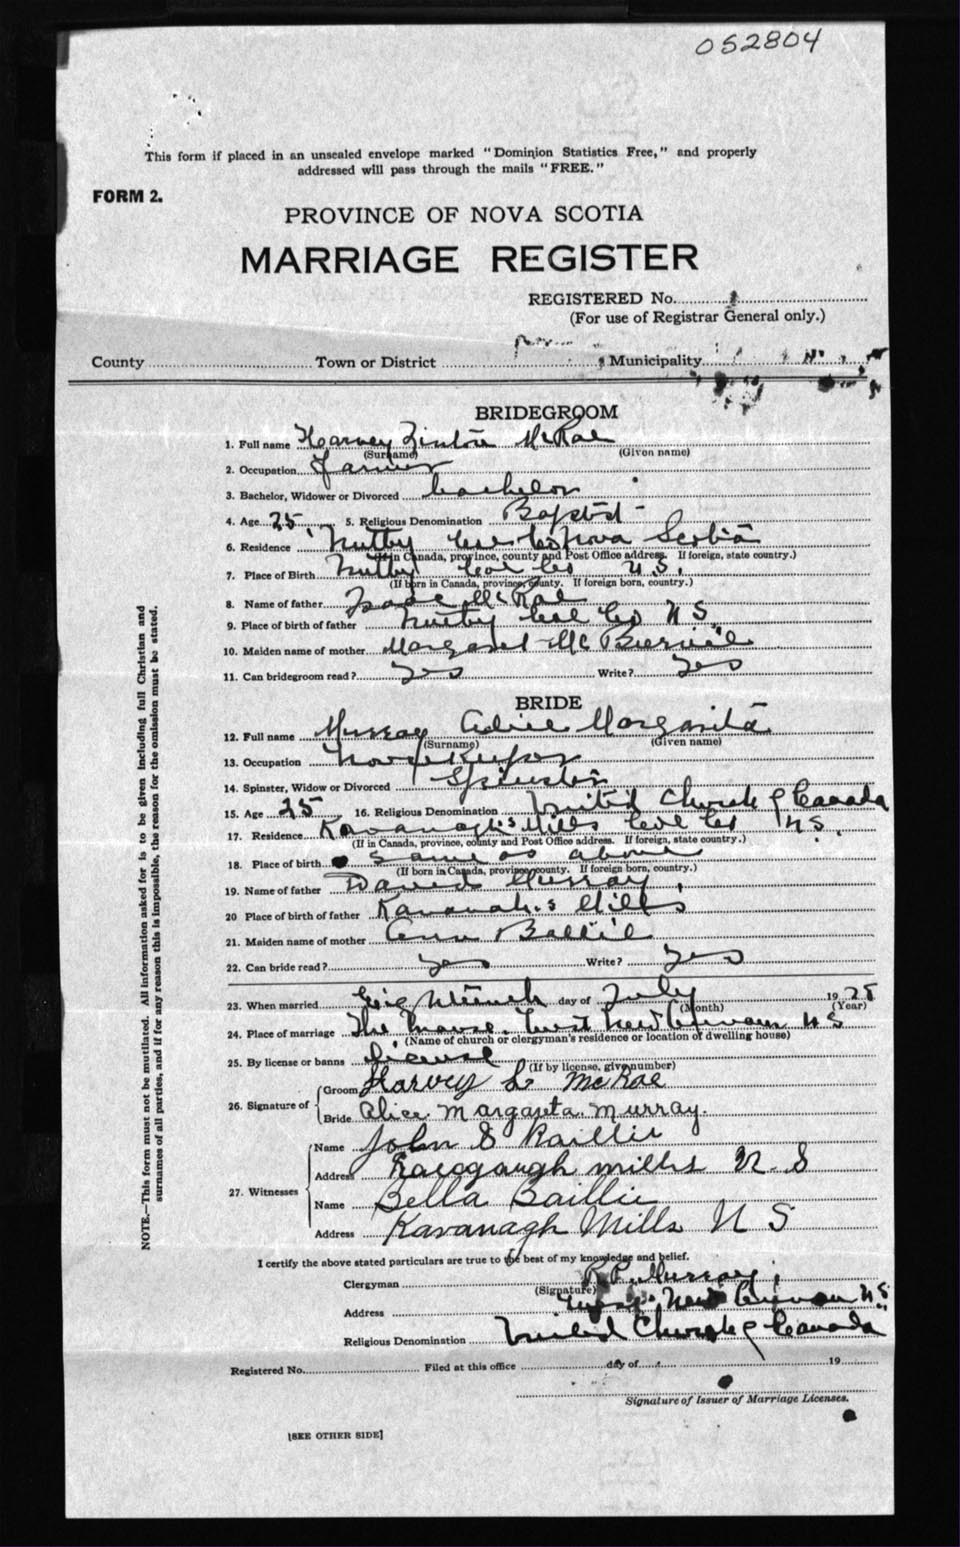 052804
This form if placed in an unsealed envelope marked "Dominion Statistics Free," and properly
addressed will pass through the mails "FREE."
FORM 2.
PROVINCE OF NOVA SCOTIA
MARRIAGE REGISTER
REGISTERED No.
(For use of Registrar General only.)
County Town or District Municipality
BRIDEGROOM
1. Full name Harvey McRae
(Surname) (Given name)
2. Occupation Farmer
3. Bachelor, Widower or Divorced bachelor
4. Age 25 5. Religious Denomination Baptist
6. Residence Nutby Col Co Nova Scotia
(If in Canada, province, county and Post Office address. If foreign, state country.)
7. Place of Birth Nutby Col Co N.S.
(If born in Canada, province, county. If foreign born, country.)
8. Name of father Isaac McRae
9. Place of birth of father Nutby Col Co N S.
10. Maiden name of mother Margaret McBurnie
11. Can bridegroom read? yes Write? yes
BRIDE
12. Full name Murray Alice Margarita
(Surname) (Given name)
13. Occupation Housekeeper
14. Spinster, Widow or Divorced Spinster
15. Age 25 16. Religious Denomination United Church of Canada
17. Residence Kavanagh's Mills Col Co N.S.
(If in Canada, province, county and Post Office address. If foreign, state country.)
18. Place of birth same as above
(If born in Canada, province, county. If foreign born, country.)
19. Name of father David Murray
20 Place of birth of father Kavanah's Mills
21. Maiden name of mother Baillie
22. Can bride read? yes Write? yes
23. When married day of July 1925
(Month) (Year)
24. Place of marriage The Manse. West New Annan N S
(Name of church or clergyman's residence or location of dwelling house)
25. By license or banns license
(If by license, give number)
26. Signature of Groom Harvey L McRae
Bride Alice Margareta Murray.
27. Witnesses Name John S Baillie
Address mills N S
Name Bella Baillie
Address Kavanagh Mills N S
I certify the above stated particulars are true to the best of my knowledge and belief.
Clergyman Murray
(Signature)
Address West New Annan N.S.
Religious Denomination United Church of Canada
Registered No. Filed at this office day of 19
Signature of Issuer of Marriage Licenses.
[SEE OTHER SIDE]
NOTE.—This form must not be mutilated. All information asked for is to be given including full Christian and
surnames of all parties, and if for any reason this is impossible, the reason for the omission must be stated.